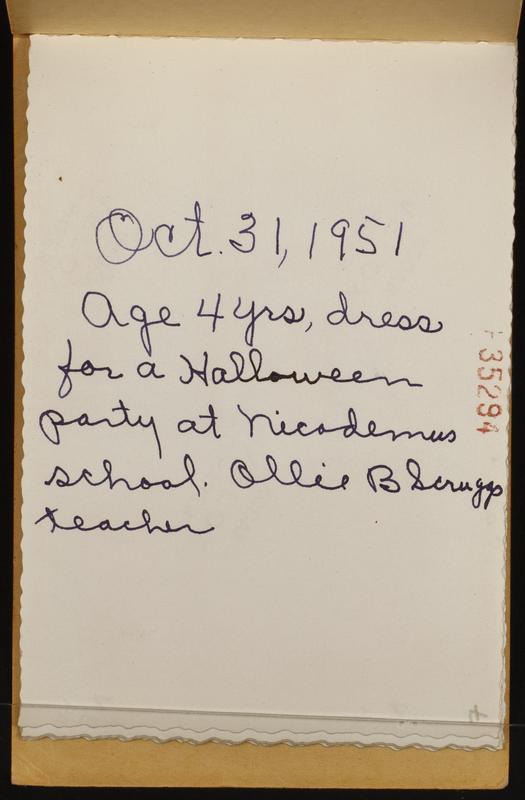 Oct. 31, 1951
Age 4 yrs, dress
for a Halloween
party at Nicodemus
school. Ollie B Scruggs
teacher
35294